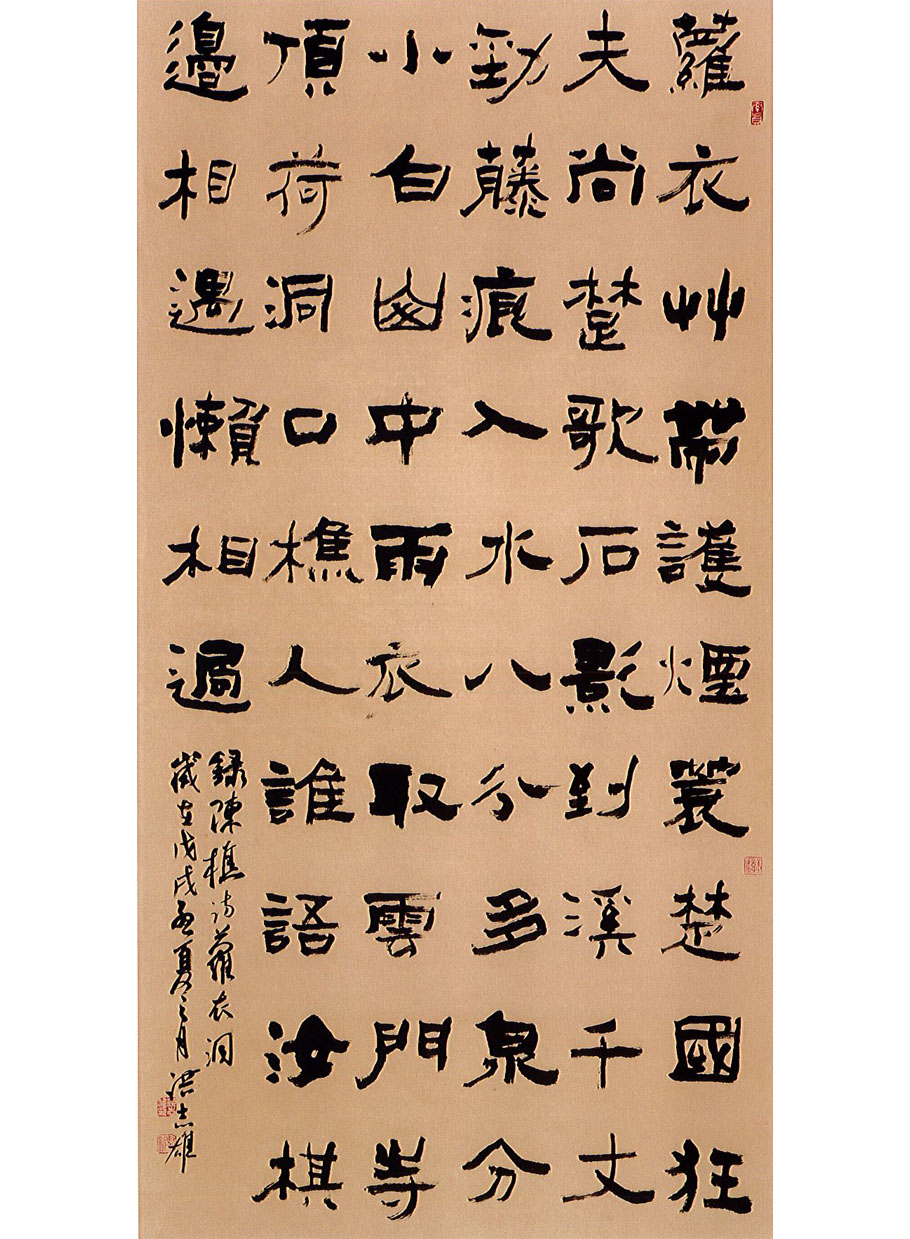 蘿衣艸帶護煙蓑楚國狂
夫尚楚歌石影到溪千丈
勁藤痕入水八分多泉分
小白中雨衣取雲門寺
頂荷洞口樵人誰語汝棋
邊相遇懶相過
錄陳樵詩蘿衣洞
歲在戊戌孟夏之月洪志雄